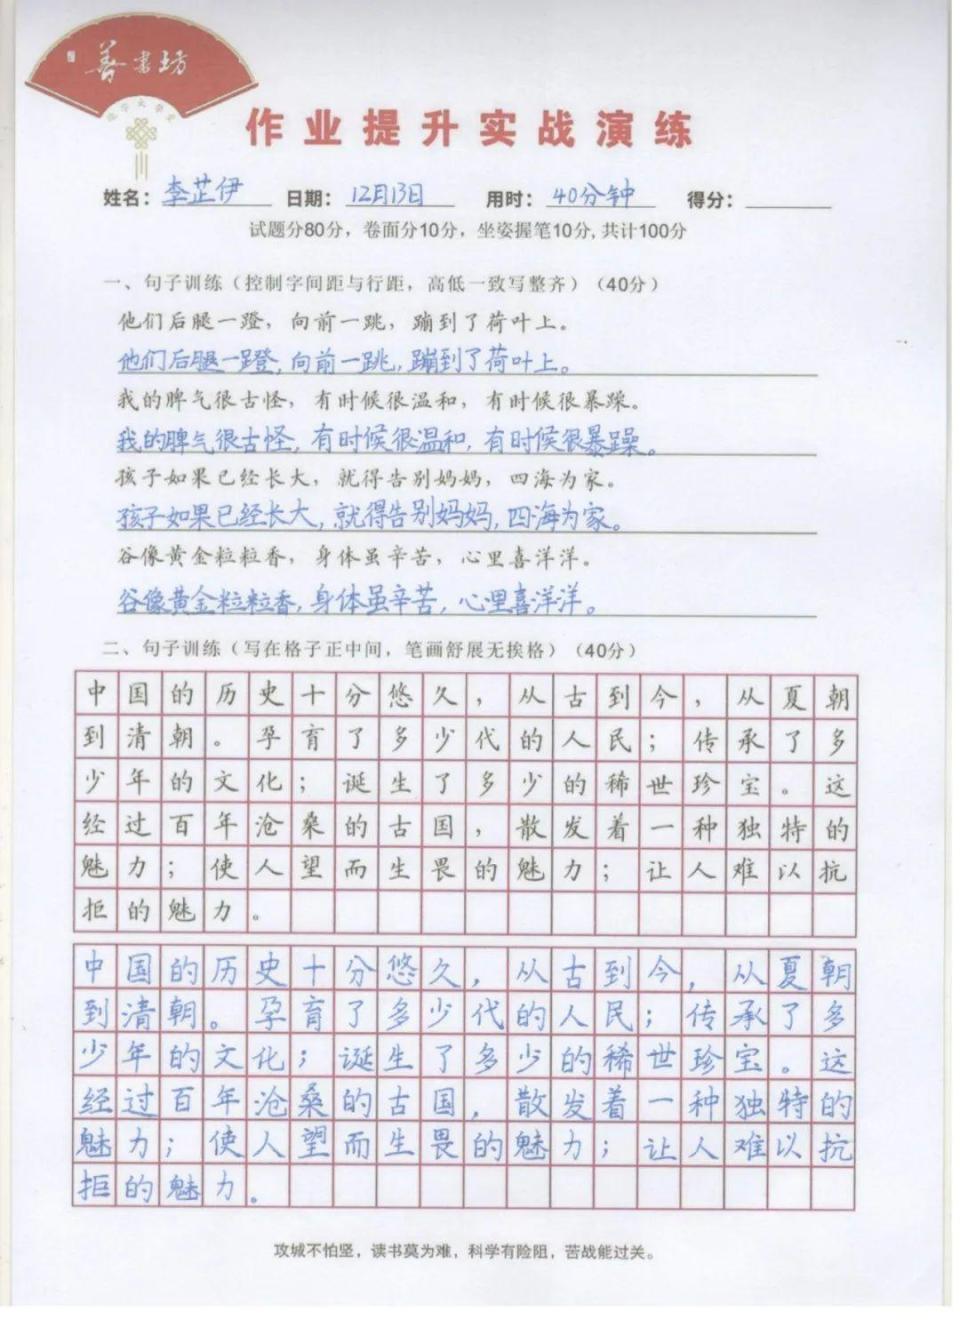 善书坊
作业提升实战演练
姓名：李芷伊 日期：12月13日 用时：40分钟 得分：
试题分80分，卷面分10分，坐姿握笔10分,共计100分
一、句子训练（控制字间距与行距，高低一致写整齐）（40分）
他们后腿一蹬，向前一跳，蹦到了荷叶上。
他们后腿一蹬，向前一跳，蹦到了荷叶上。
我的脾气很古怪，有时候很温和，有时候很暴躁。
我的脾气很古怪，有时候很温和，有时候很暴躁。
孩子如果已经长大，就得告别妈妈，四海为家。
孩子如果已经长大，就得告别妈妈，四海为家。
谷像黄金粒粒香，身体虽辛苦，心里喜洋洋。
谷像黄金粒粒香，身体虽辛苦，心里喜洋洋。
二、句子训练（写在格子正中间，笔画舒展无挨格）（40分）
中国的历史十分悠久，从古到今，从夏朝
到清朝。孕育了多少代的人民；传承了多
少年的文化；诞生了多少的稀世珍宝。这
经过百年沧桑的古国，散发着一种独特的
魅力；使人望而生畏的魅力；让人难以抗
拒的魅力。
中国的历史十分悠久，从古到今，从夏朝
到清朝。孕育了多少代的人民；传承了多
少年的文化；诞生了多少的稀世珍宝。这
经过百年沧桑的古国，散发着一种独特的
魅力；使人望而生畏的魅力；让人难以抗
拒的魅力。
攻城不怕坚，读书莫为难，科学有险阻，苦战能过关。